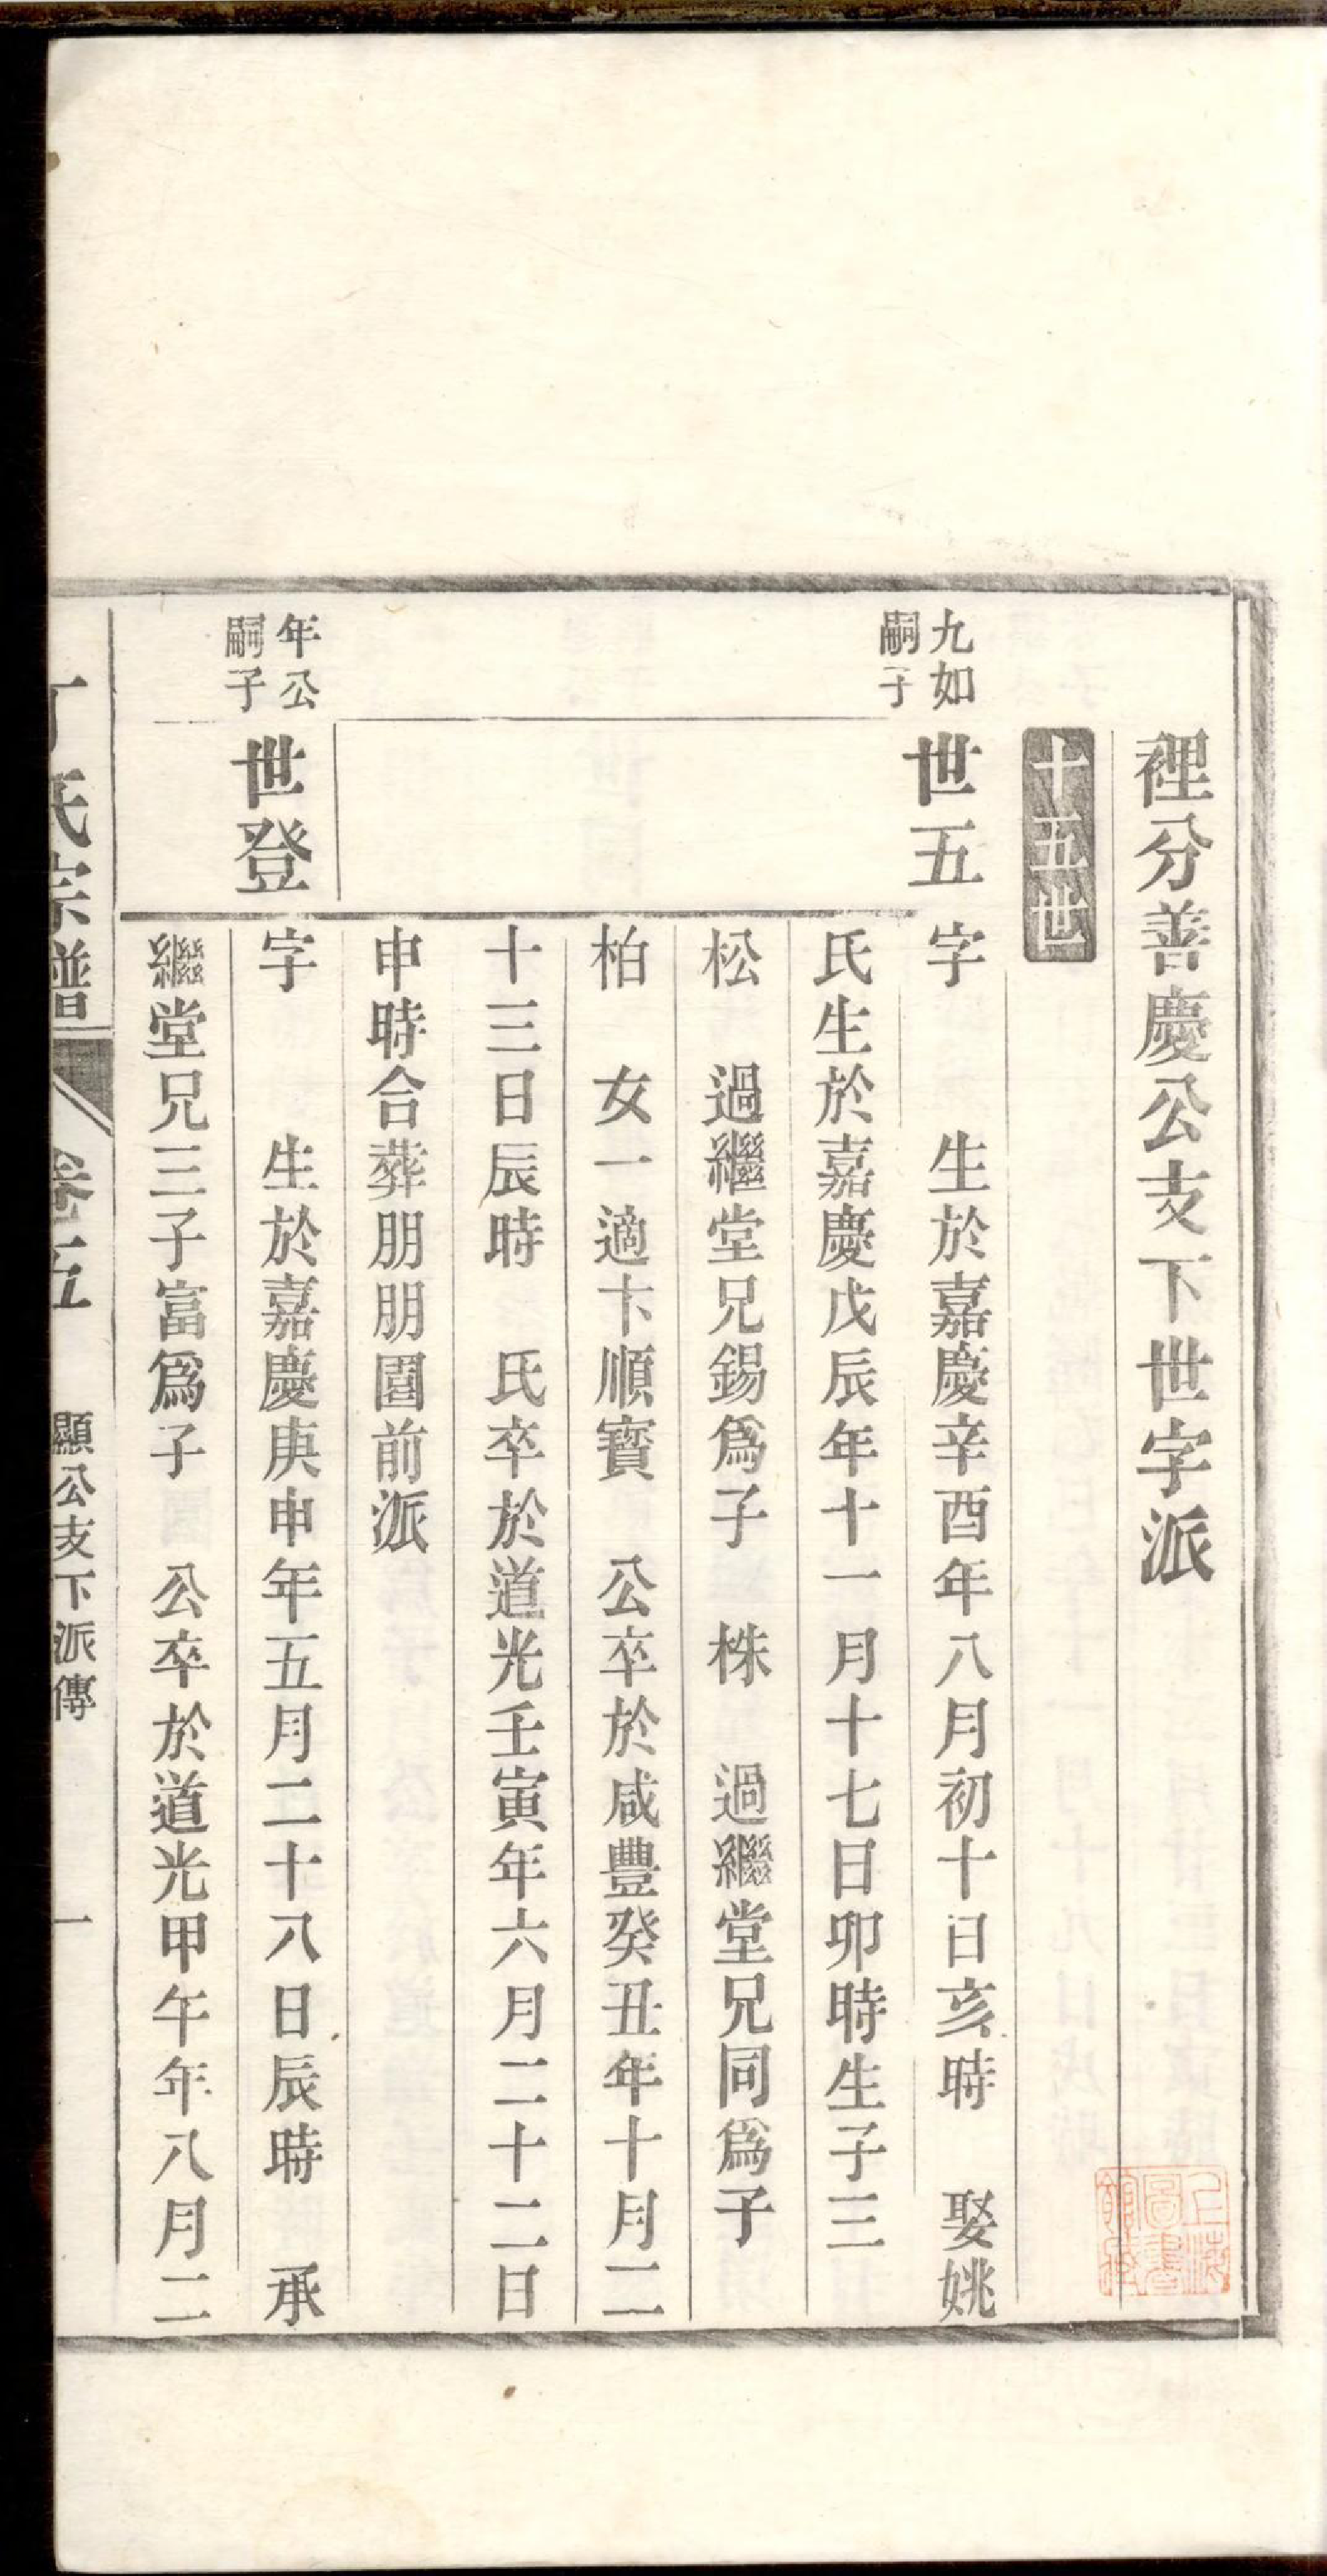 裡分善慶公支下世字派
十五世
九如
嗣子
世五
字　生於嘉慶辛酉年八月初十日亥時　娶姚
氏生於嘉慶戊辰年十一月十七日卯時生子三
松　過繼堂兄錫爲子　株　過繼堂兄同爲子
柏　女一適卞順寶　公卒於咸豐癸丑年十月二
十三日辰時　氏卒於道光壬寅年六月二十二日
申時合葬朋朋園前派
年公
嗣子
世登
字　生於嘉慶庚申年五月二十八日辰時　承
繼堂兄三子富爲子　公卒於道光甲午年八月二
丁氏宗譜　卷五　顯公支下派傳　一
上海
圖書
館藏